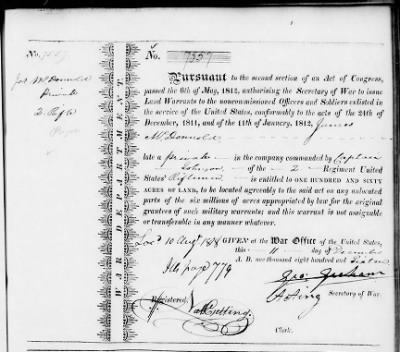 No. 7557
Jas McDonnold
Private
2. Rifle
WAR DEPARTMENT.
No. 7557
Pursuant to the second section of an Act of Congress,
passed the 6th of May, 1812, authorising the Secretary of War to issue
Land Warrants to the noncommissioned Officers and Soldiers enlisted in
the service of the United States, conformably to the acts of the 24th of
December, 1811, and of the 11th of January, 1812, James
McDonnold
late a private in the company commanded by Captain
Johnson of the 2 Regiment United
States' Riflemen is entitled to ONE HUNDRED AND SIXTY
ACRES OF LAND, to be located agreeably to the said act on any unlocated
parts of the six millions of acres appropriated by law for the original
grantees of such military warrants; and this warrant is not assignable
or transferable in any manner whatever.
Locd 10 Augt 1818 GIVEN at the War Office of the United States,
this 11 day of December
A. D. one thousand eight hundred and sixteen
Ills page 779
Geo: Graham
Acting Secretary of War.
Registered,
Clerk.